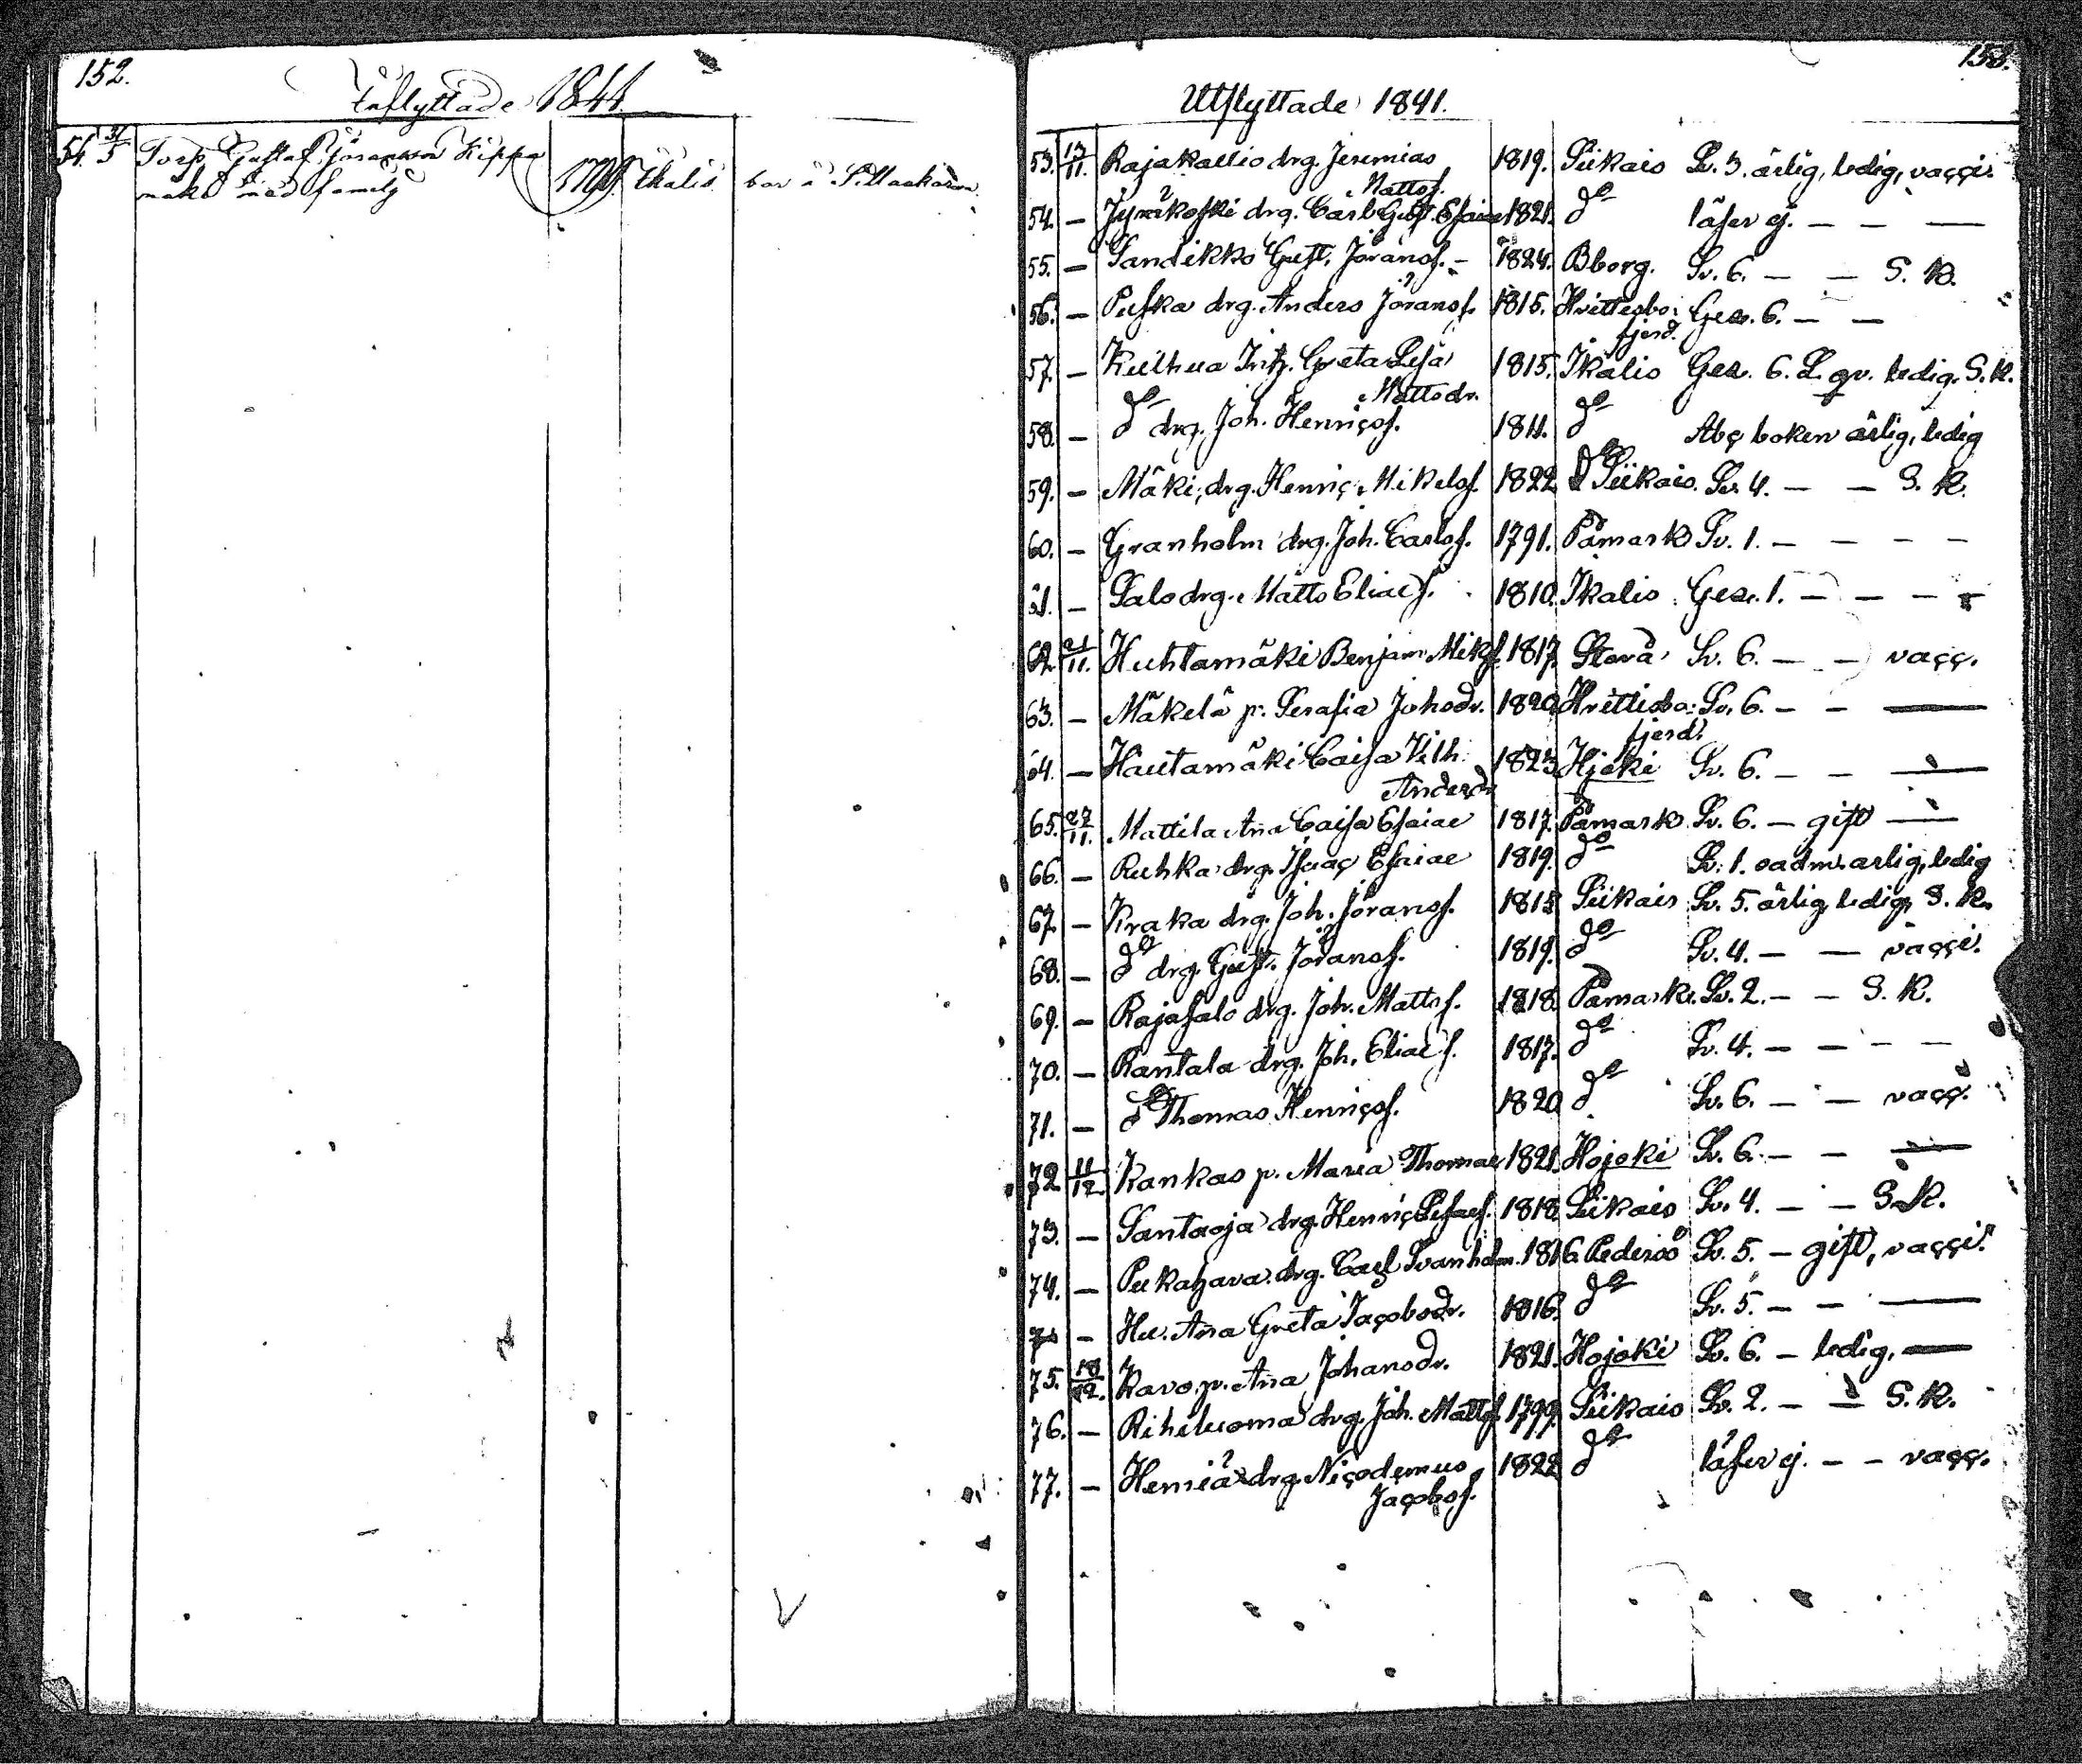 152.
Inflyttade 1844.
54. 31/5 Torp. Gustaf Jöransson Kippo 1799. Ikalis. bor å
maka med familj
153.
Utflyttade 1841.
53. 13/11. Rajakallio drg. Jeremias 1819. Siikais Sv. 3. ärlig, ledig, vacci.
Mattss.
54. — Jyräkoski drg. Carl Gust. Esaiae 1821. do läser ej. — — —
55. — Sandikko Gust. Joranss. — 1824. Bborg. Sv. 6. — — S. K.
56. — Puska drg. Anders Joranss. 1815. Hvittesbo: Gez. 6. — —
fjerd.
57. — Kulhua Inh. Greta Lisa 1815. Ikalis Gez. 6. L. qv. ledig. S. K.
Mattsdr.
58. — do drg. Joh. Henricss. 1811. do Abc boken ärlig, ledig
59. — Mäki, drg. Henric Mikelss. 1822 Siikais. Sv. 4. — — S. K.
60. — Granholm drg. Joh. Carlss. 1791. Påmark Sv. 1. — — — —
61. — Salo drg. Matts Eliae s. 1810. Ikalis Gez. 1. — — — —
62. 21/11. Huhtamäki Benjam. Mikss. 1817. Storå Sv. 6. — — vacc.
63. — Mäkelä p. Serafia Johsdr. 1820 Hvittisbo: Sv. 6. — — —
fjerd.
64. — Hautamäki Caisa Vilh. 1823 Hjoki Sv. 6. — — —
Andersdr
65. 27/11. Mattila Ana Caisa Esaiae 1817. Påmark Sv. 6. — gift —
66. — Ruhka drg. Isaac Esaiae 1819. do Sv. 1. oadm. ärlig, ledig
67. — Kraka drg. Joh. Joranss. 1815 Siikais Sv. 5. ärlig, ledig, S. K.
68. — do drg. Gust. Joranss. 1819. do Sv. 4. — — vacci.
69. — Rajasalo drg. Joh. Mattss. 1818. Påmark. Sv. 2. — — S. K.
70. — Rantala drg. Joh. Eliae s. 1817. do Sv. 4. — — — —
71. — do Thomas Henricss. 1820 do Sv. 6. — — vacc.
72. 11/12. Kankas p. Maria Thomae 1821. Hojoki Sv. 6. — — —
73. — Santaoja drg. Henric 1818 Siikais Sv. 4. — — S. K.
74. — drg. Carl Svanholm. 1816. Pedersö Sv. 5. — gift, vacci.
— Hu. Ana Greta Jacobsdr. 1816. do Sv. 5. — — —
75. 18/12. Kavo p. Ana Johansdr. 1821. Hojoki Sv. 6. — ledig, —
76. — Rihiluoma drg. Joh. Mattss. 1799. Siikais Sv. 2. — — S. K.
77. — Heniä drg. Nicodemus 1822 do läser ej. — — vacc.
Jacobss.